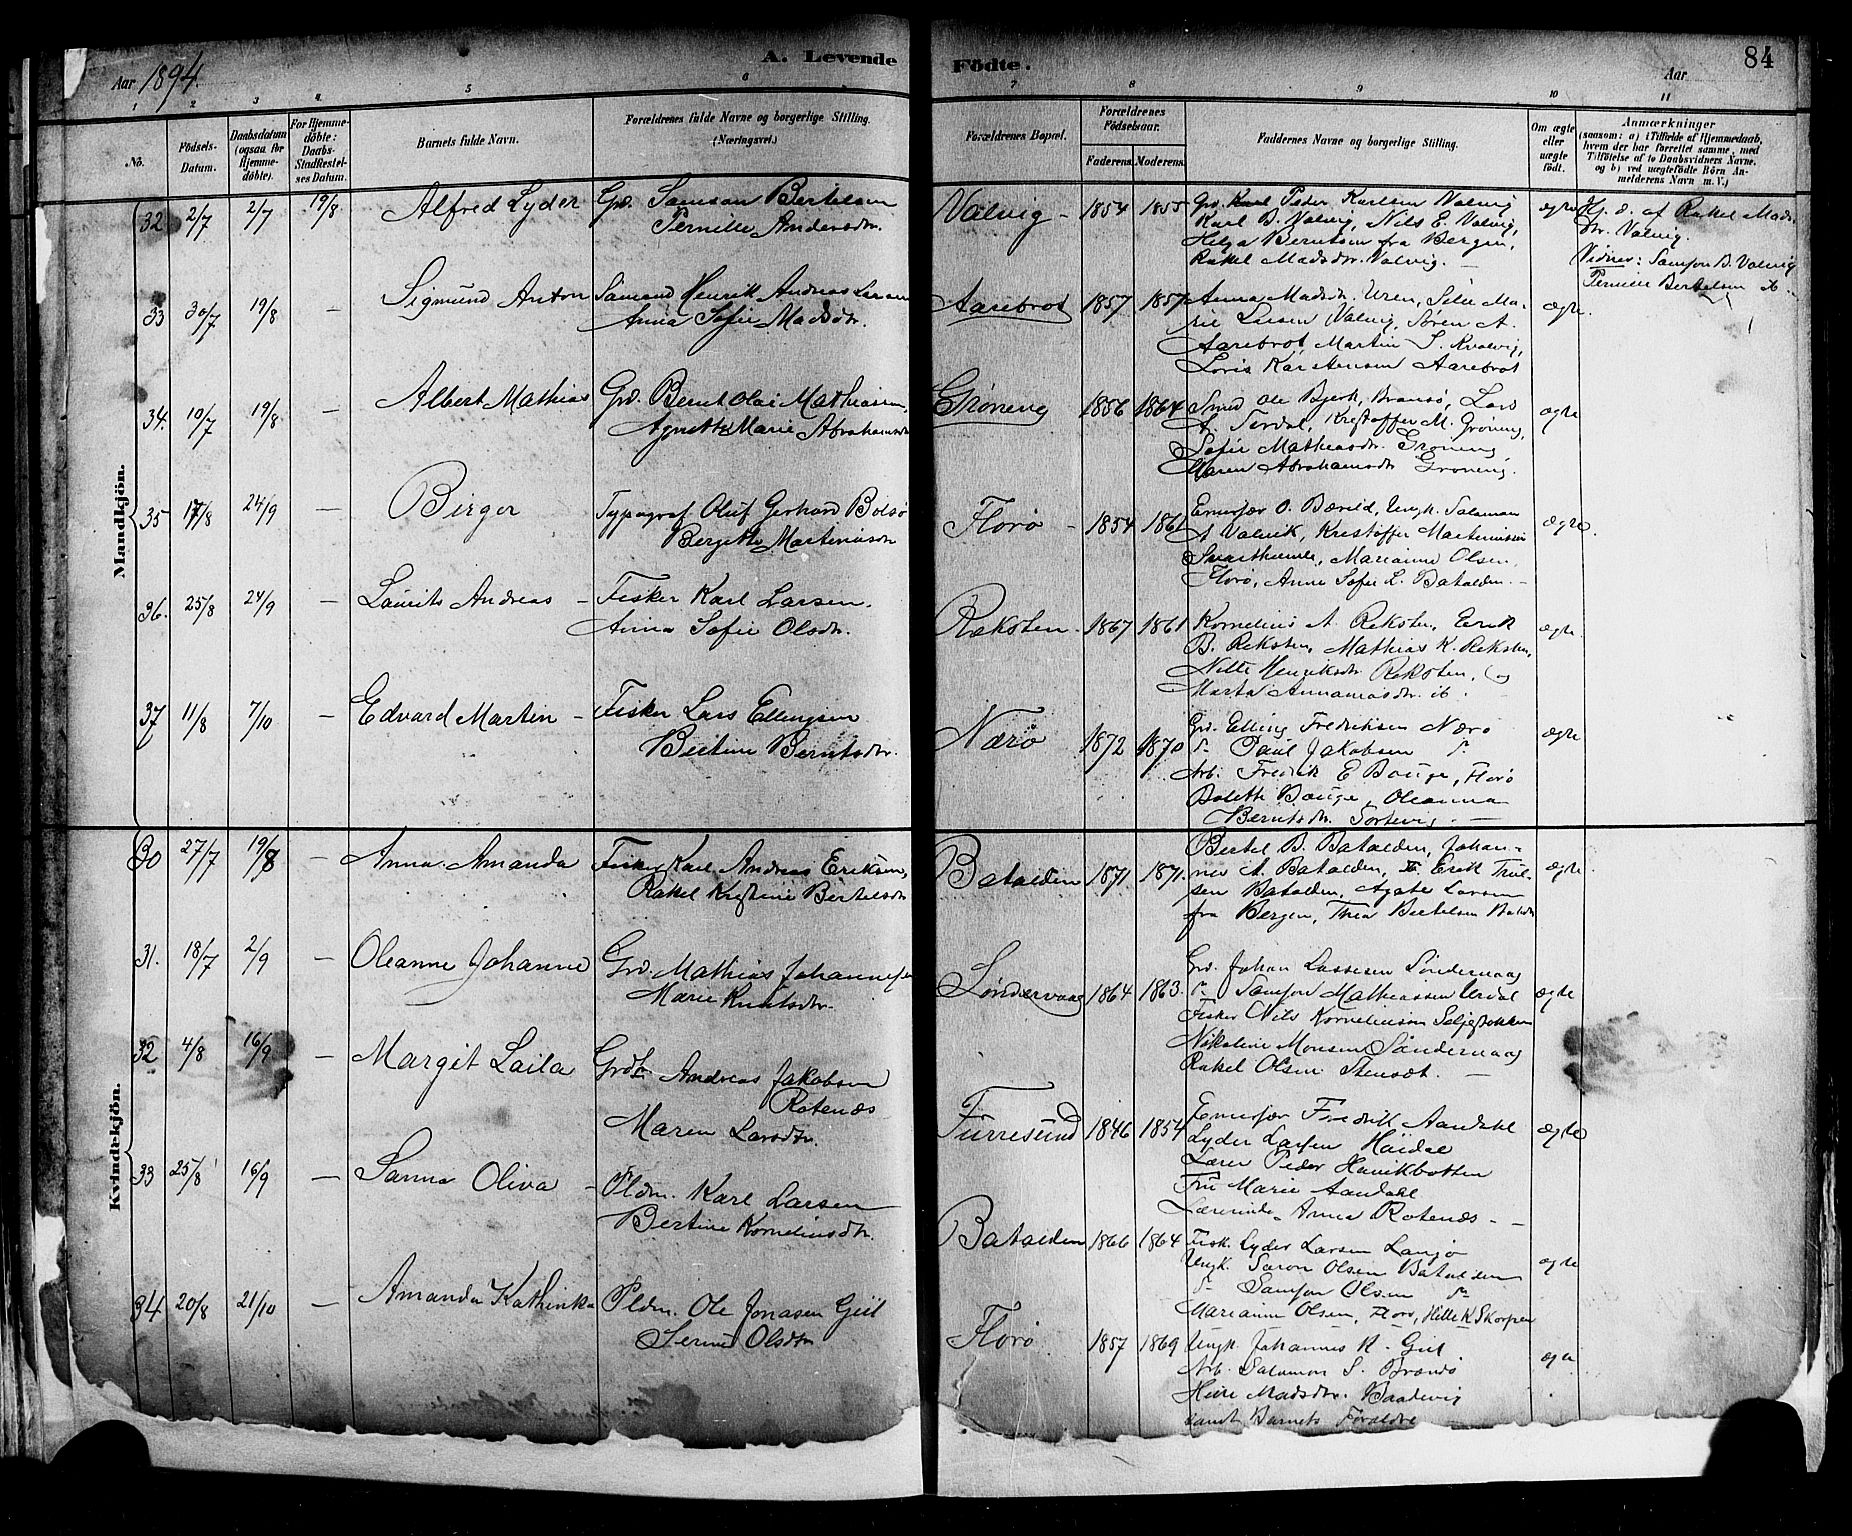 Aar 1894.
A. Levende
Födte.
Aar
84
1 2 3 4 5 6 7 8 9 10 11
No.
Födsels-
Datum.
Daabsdatum
(ogsaa for
Hjemme-
döbte).
For Hjemme-
döbte:
Daabs-
Stadfæstel-
ses Datum.
Barnets fulde Navn.
Forældrenes fulde Navne og borgerlige Stilling.
(Næringsvei.)
Forældrenes Bopæl.
Forældrenes
Födselsaar.
Faderens. Moderens.
Faddernes Navne og borgerlige Stilling.
Om ægte
eller
uægte
födt.
Anmærkninger
(saasom: a) i Tilfælde af Hjemmedaab,
hvem der har forrettet samme, med
Tilföielse af to Daabsvidners Navne.
og b) ved uægtefödte Börn An-
melderens Navn m. V.)
Mandkjön.
32 2/7 2/7 19/8 Alfred Lyder Grd. Samson Bertelsen
Pernille Andersdtr.
Valvig - 1854 1855 Grd. Peder Karlsen Valvig
Karl B. Valvig, Nils E. Valvig,
Helga Berntsen fra Bergen,
Rakel Madsdtr. Valvig. -
ægte
Hj. d. af Rakel Mads-
dtr. Valvig.
Vidner: Samson B. Valvig
Pernille Bertelsen ib.
33 30/7 19/8 - Sigmund Anton Sömand Henrik Andreas Larsen
Anna Sofie Madsdtr.
Aarebrot 1857 1857 Anna Madsdtr. Uren, Silie Ma-
rie Larsen Valvig, Sören A.
Aarebrot Martin S. Kvalvig,
Karstensen Aarebrot
ægte.
34. 10/7 19/8 - Albert Mathias Grd. Bernt Olai Mathiassen,
Agnethe Marie Abrahamsdtr
Gröning 1856 1864 Smed Ole Bjerk, Brandsö, Lars
A. Terdal, Kristoffer M. Gröning,
Sofie Mathiasdtr. Gröning,
Maren Abrahamsdtr Gröning.
ægte
35 17/8 24/9 - Birger Typograf Oluf Gerhard Bolsö
Bergitte Martinusdtr
Florö - 1854 1861 O. Ungk. Salamon
A Valvik, Kristoffer Martinussen
Svarthumle, Marianne Olsen,
Florö, Anne Sofie L. Batalden. -
ægte.
36. 25/8 24/9 - Laurits Andreas - Fisker Karl Larsen.
Anna Sofie Olsdtr.
Reksten. 1867 1861 Kornelius A. Reksten, Erik
B. Reksten, Mathias K. Reksten,
Nille Henriksdtr Reksten, og
Marta ib.
ægte.
37 11/8 7/10 - Edvard Martin - Fisker Lars Ellingsen
Bertine Berntsdtr.
Nærö 1872 1870 Grd. Elling Fredriksen Nærö
Paul Jakobsen
Arb. Fredrik E Bauge, Florö
Bolette Bauge, Oleanna
Berntsdtr Sortevig. -
ægte
Kvindekjön.
30 27/7 19/8 - Anna Amanda Fisker Karl Andreas Eriksen,
Rakel Kristine Bertelsdtr
Batalden 1871. 1871. Bertel B. Batalden, Johan-
nes A. Batalden, Erik Truul-
sen Batalden, Agate Larsen
fra Bergen, Thea Bertelsen
ægte.
31. 18/7 2/9 - Oleanne Johanne Grd. Mathias Johannessen
Marie Knutsdtr.
Söndervaag 1864 1863. Grd. Johan Lassesen Söndervaag
Samson Mathiassen Urdal
Fisker Nils Korneliussen Seljestokken
Nikoline Monsen Söndervaag
Rakel Olsen Stensöt. -
ægte
32 4/8 16/9 - Margit Laila Grdbr Andreas Jakobsen
Rotenæs
Maren Larsdtr.
Furresund 1846 1854 Fredrik Aandahl
Lyder Larsen Höidal
Lærer Peder Havikbotten
Fru Marie Aandahl
Lærerinde Anna Rotenæs -
ægte
33 25/8 16/9 - Sanna Oliva - Pldm. Karl Larsen
Bertine Korneliusdtr.
Batalden 1866 1864 Fisk. Lyder Larsen Langö
Ungk. Saron Olsen Batalden
Samson Olsen
Marianne Olsen, Florö, Hille K Skorpen
ægte
34 20/8 21/10 - Amanda Kathinka Pldm. Ole Jonasen Giil
Serine Olsdtr
Florö 1857 1869 Ungk. Johannes R. Giil
Arb. Salamon S. Brandsö
Madsdtr. Baadevig
samt Barnets Forældre
ægte